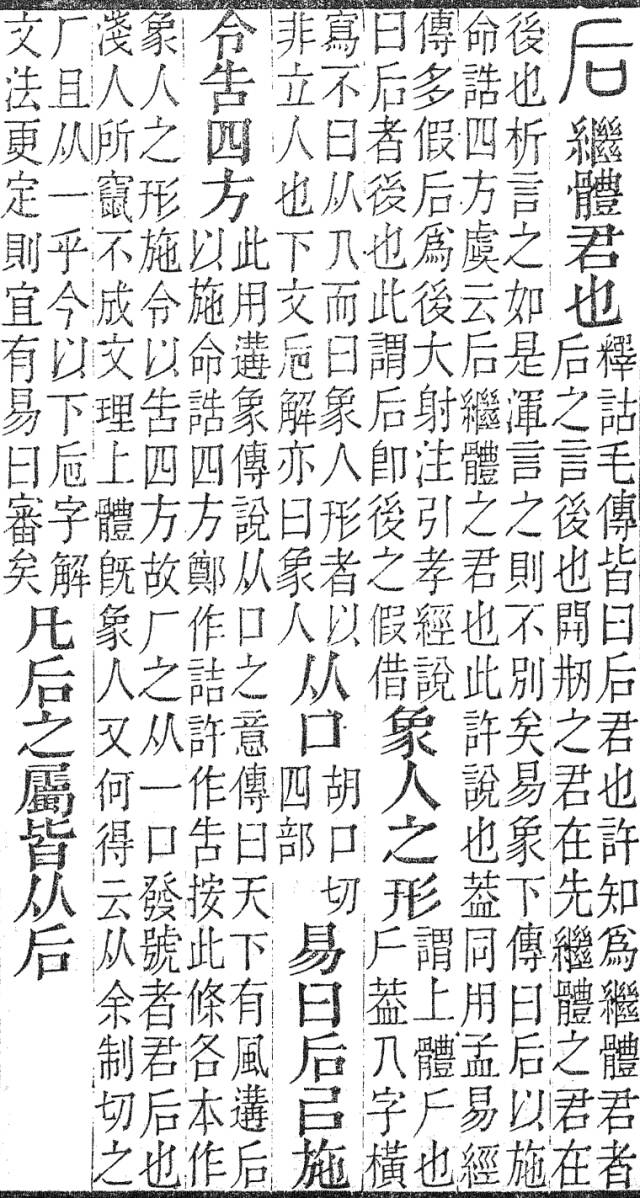 后
繼體君也
釋詁毛傳皆曰后君也許知爲繼體君者
后之言後也開㓝之君在先繼體之君在
後也析言之如是渾言之則不別矣易象下傳曰后以施
命誥四方虞云后繼體之君也此許說也葢同用孟易經
傳多假后爲後大射注引孝經說
曰后者後也此謂后卽後之假借
象人之形
謂上體𠂆也
𠂆葢人字橫
寫不曰从人而曰象人形者以
非立人也下文卮解亦曰象人
从口
胡口切
四部
易曰后㠯施
令告四方
此用遘象傳說从口之意傳曰天下有風遘后
以施命誥四方鄭作詰許作告按此條各本作
象人之形施令以告四方故厂之从一口發號者君后也
淺人所竄不成文理上體旣象人又何得云从余制切之
厂且从一乎今以下卮字解
文法更定則宜有易曰審矣
凡后之屬皆从后